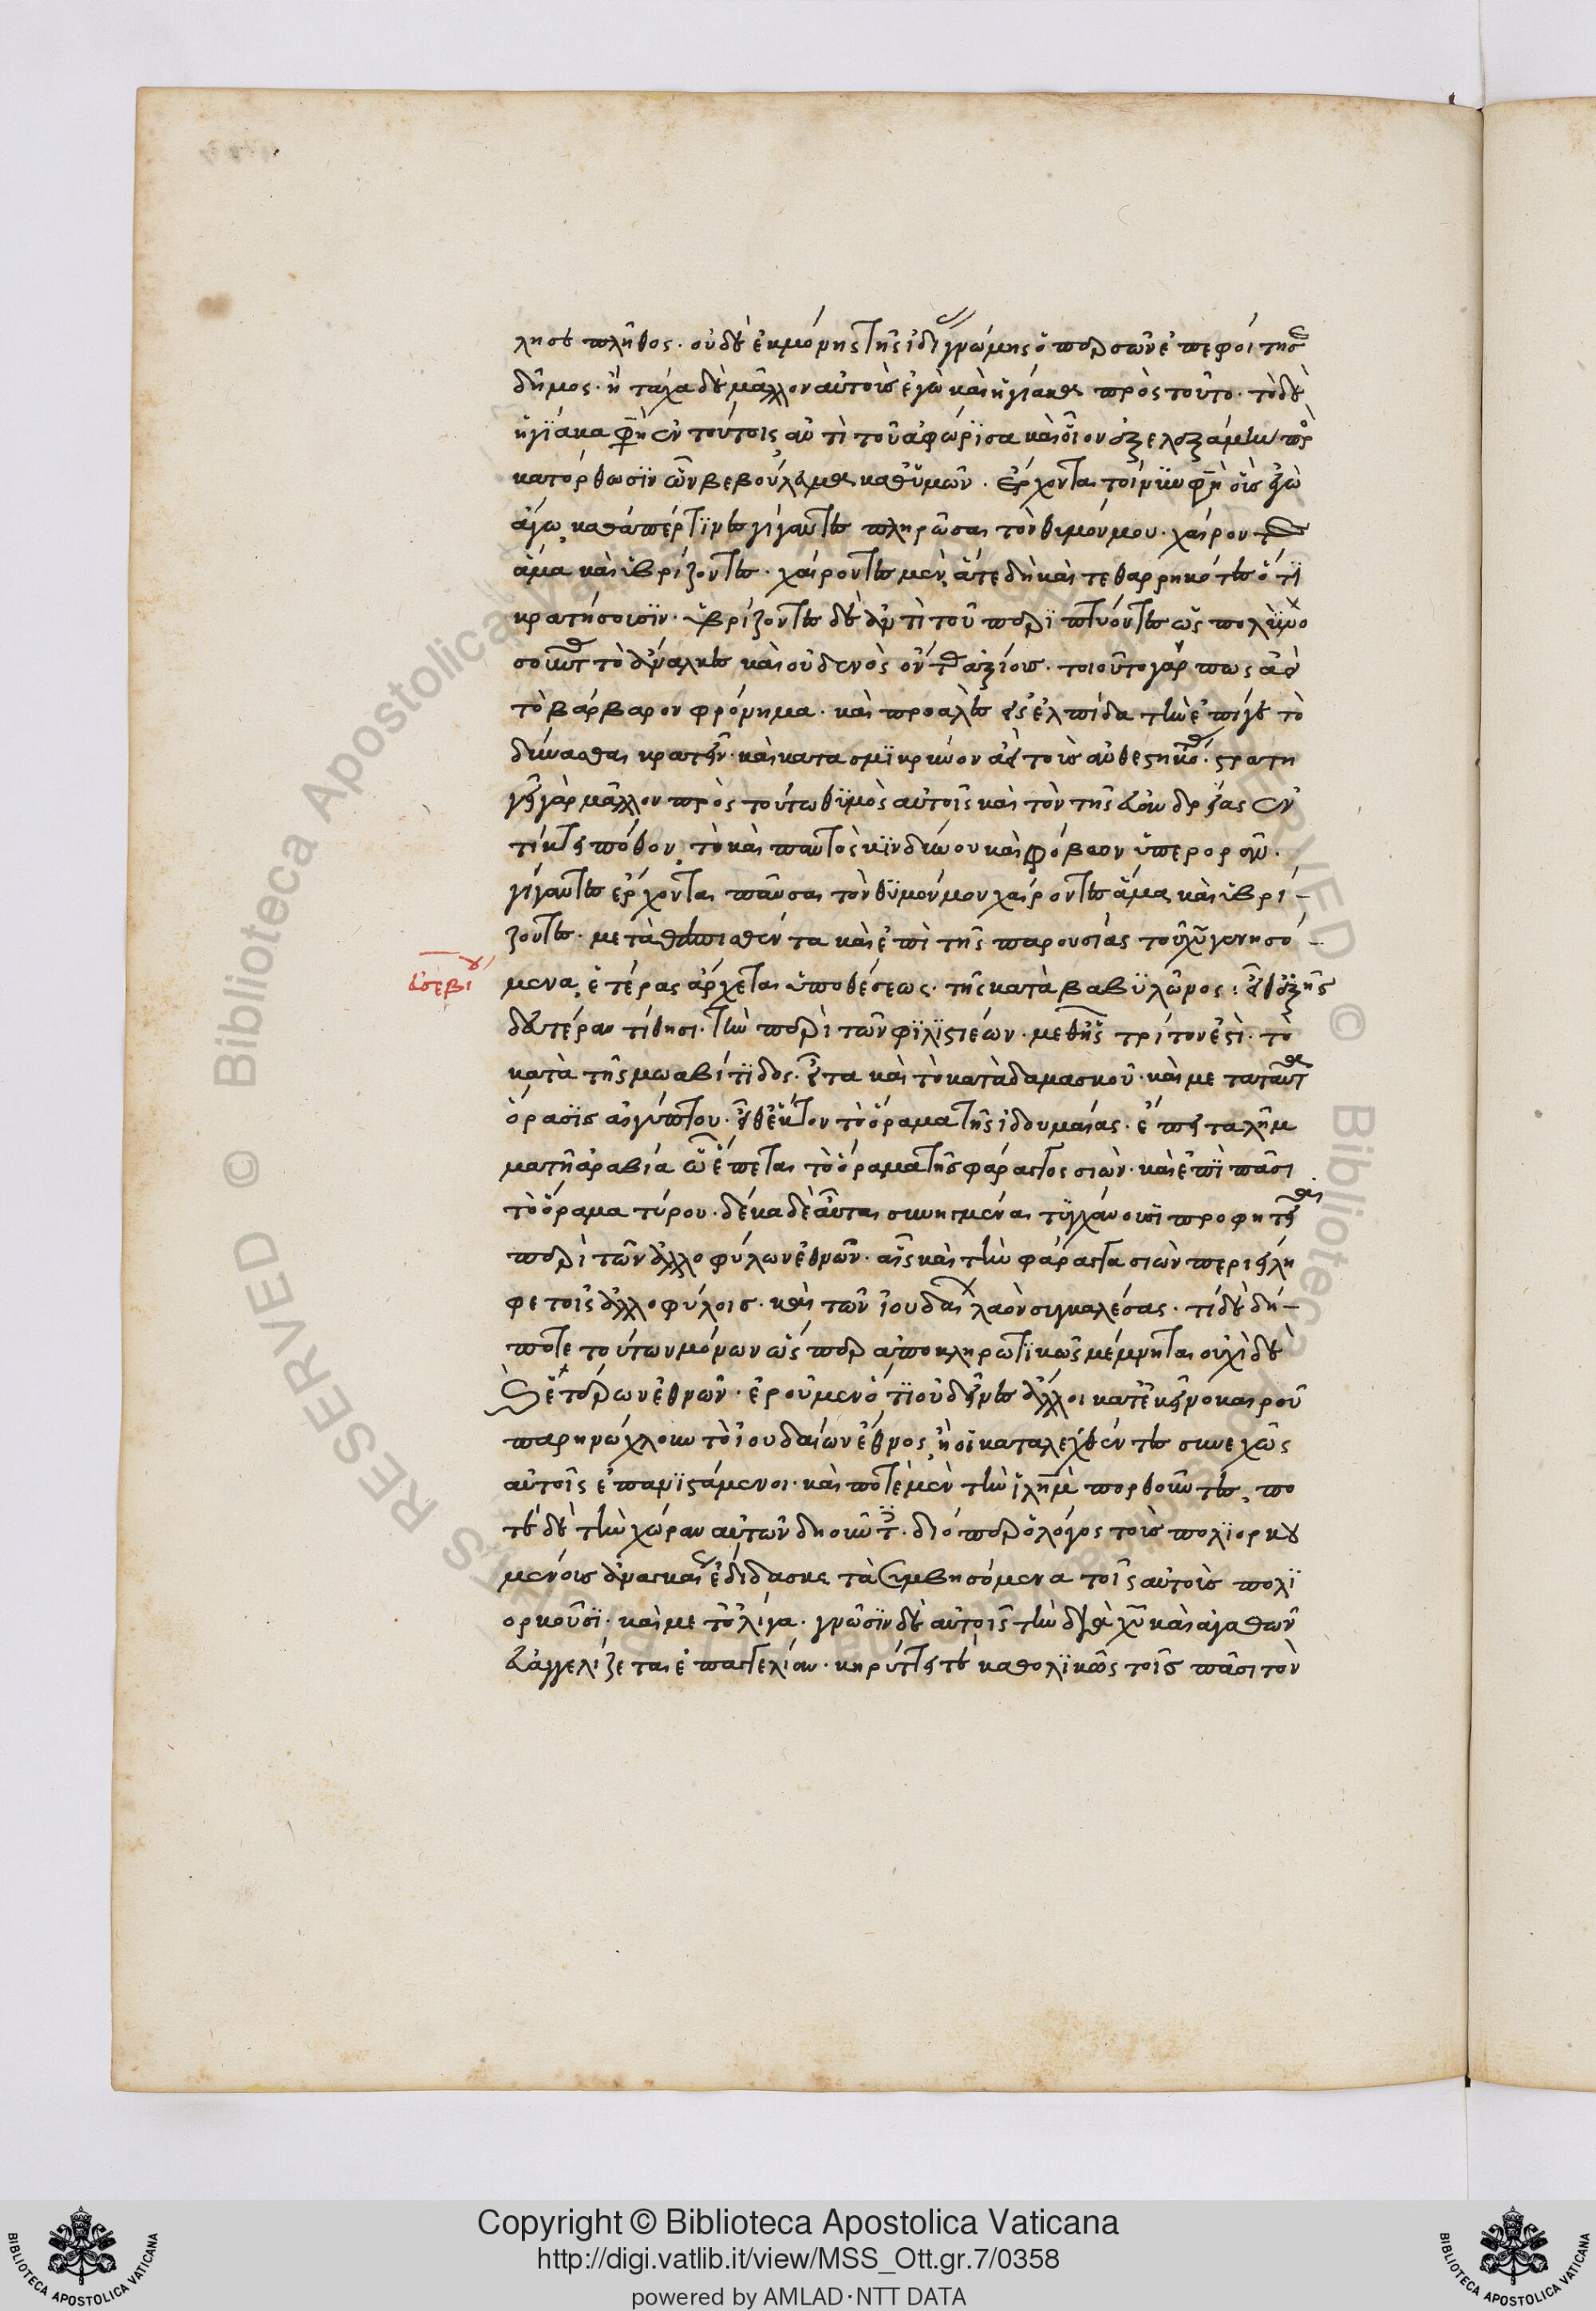 λησε πλῆθος. οὐδὲ ἐκ μόνης τῆς ἰδί γνώμης ὁ περσῶν ἐπεφοίτησε
δῆμος. ἢ τάχα δὲ μᾶλλον αὐτοῖς ἐγὼ καὶ ἡγίακα πρὸς τοῦτο. τὸ δὲ
ἡγίακα φη ἐν τούτοις ἀντὶ τοῦ ἀφώρισα καὶ οἷον ἐξελεξάμην πρ
κατόρθωσιν ὧν βεβούλευμαι καθ' ὑμῶν. ἔρχονται τοίνυν φη οἷς ἐγὼ
ἄγω, καθάπερ τινες γίγαντες πληρῶσαι τὸν θυμόν μου. χαίροντες
ἅμα καὶ ὑβρίζοντες. χαίροντες μὲν, ἅτε δὴ καὶ τεθαρρηκότες ὅτι
κρατήσουσιν. ὑβρίζοντες δὲ ἀντὶ τοῦ περιπτύοντες ὡς πολεμήσο
τὸ ἄναλκες καὶ οὐδενὸς ἀξίους. τοιοῦτο γάρ πως ἀεὶ
τὸ βάρβαρον φρόνημα. καὶ προαλὲς εἰς ἐλπίδα τὴν ἐπί γε τὸ
δύνασθαι κρατεῖν. καὶ κατα σμικρύνον ἀεὶ τοὺς ἀνθεστηκό. στρατη
γεῖ γὰρ μᾶλλον πρὸς τούτω θυμὸς αὐτοῖς καὶ τὸν τῆς εὐανδρείας ἐν
τίκτει πόθον, τὸ καὶ παντὸς κινδύνου καὶ φόβου ὑπερορᾶν.
γίγαντες ἔρχονται παῦσαι τὸν θυμόν μου χαίροντες ἅμα καὶ ὑβρί-
ζοντες. μετὰ τὰ καὶ ἐπὶ τῆς παρουσίας τοῦ χυ γενησό-
εὐσεβίου
μενα, ἑτέρας ἄρχεται ὑποθέσεως. τῆς κατὰ βαβυλῶνος. εἶθ' ἑξῆς
δευτέραν τίθησι. τὴν περὶ τῶν φυλιστιέων. μεθ' ἧς τρίτον ἐστὶ. τὸ
κατὰ τῆς μωαβίτιδος. εἶτα καὶ τὸ κατὰ δαμασκοῦ. καὶ με τα ταυτ
ὅρασις αἰγύπτου. εἶθ' ἕκτον τὸ ὅραμα τῆς ἰδουμαίας. ἔπειτα λῆμ
μα τῆ ἀραβία ὧ ἕπεται τὸ ὅραμα τῆς φάραγγος σιών. καὶ ἐπὶ πᾶσι
τὸ ὅραμα τύρου. δέκα δὲ αὗται συνημμέναι τυγχάνουσι προφητεῖαι
περὶ τῶν ἀλλοφύλων ἐθνῶν. αἷς καὶ τὴν φάραγγα σιὼν περιείλη
φε τοῖς ἀλλοφύλοις. καὶ τῶν ἰουδαι λαὸν συγκαλέσας. τί δὲ δή-
ποτε τούτων μόνων ὥσπερ ἀποκληρωτικῶς μέμνηται οὐχὶ δὲ
ἑτέρων ἐθνῶν. ἐροῦμεν ὅτι οὐδένες ἄλλοι κατ' ἐκεῖνο καιροῦ
παρηνώχλουν τὸ ἰουδαίων ἔθνος, ἢ οἱ καταλεχθέντες συνεχῶς
αὐτοῖς ἐπανιστάμενοι. καὶ ποτὲ μὲν τὴν ιλημ πορθοῦντες, πο
τὲ δὲ τὴν χώραν αὐτῶν δηοῦντ. διόπερ ὁ λόγος τοὺς πολιορκου
μένους ἀναγκαι ἐδίδασκε τὰ συμβησόμενα τοῖς αὐτοὺς πολι
ορκοῦσι. καὶ με τ' ὀλίγα. γνῶσιν δὲ αὐτοῖς τὴν διὰ χυ καὶ ἀγαθῶν
εὐαγγελίζεται ἐπαγγελίαν. κηρύττει τε καθολικῶς τοῖς πᾶσι τὸν
Copyright © Biblioteca Apostolica Vaticana
http://digi.vatlib.it/view/MSS_Ott.gr.7/0358
powered by AMLAD·NTT DATA
BIBLIOTECA APOSTOLICA VATICANA
BIBLIOTECA APOSTOLICA VATICANA